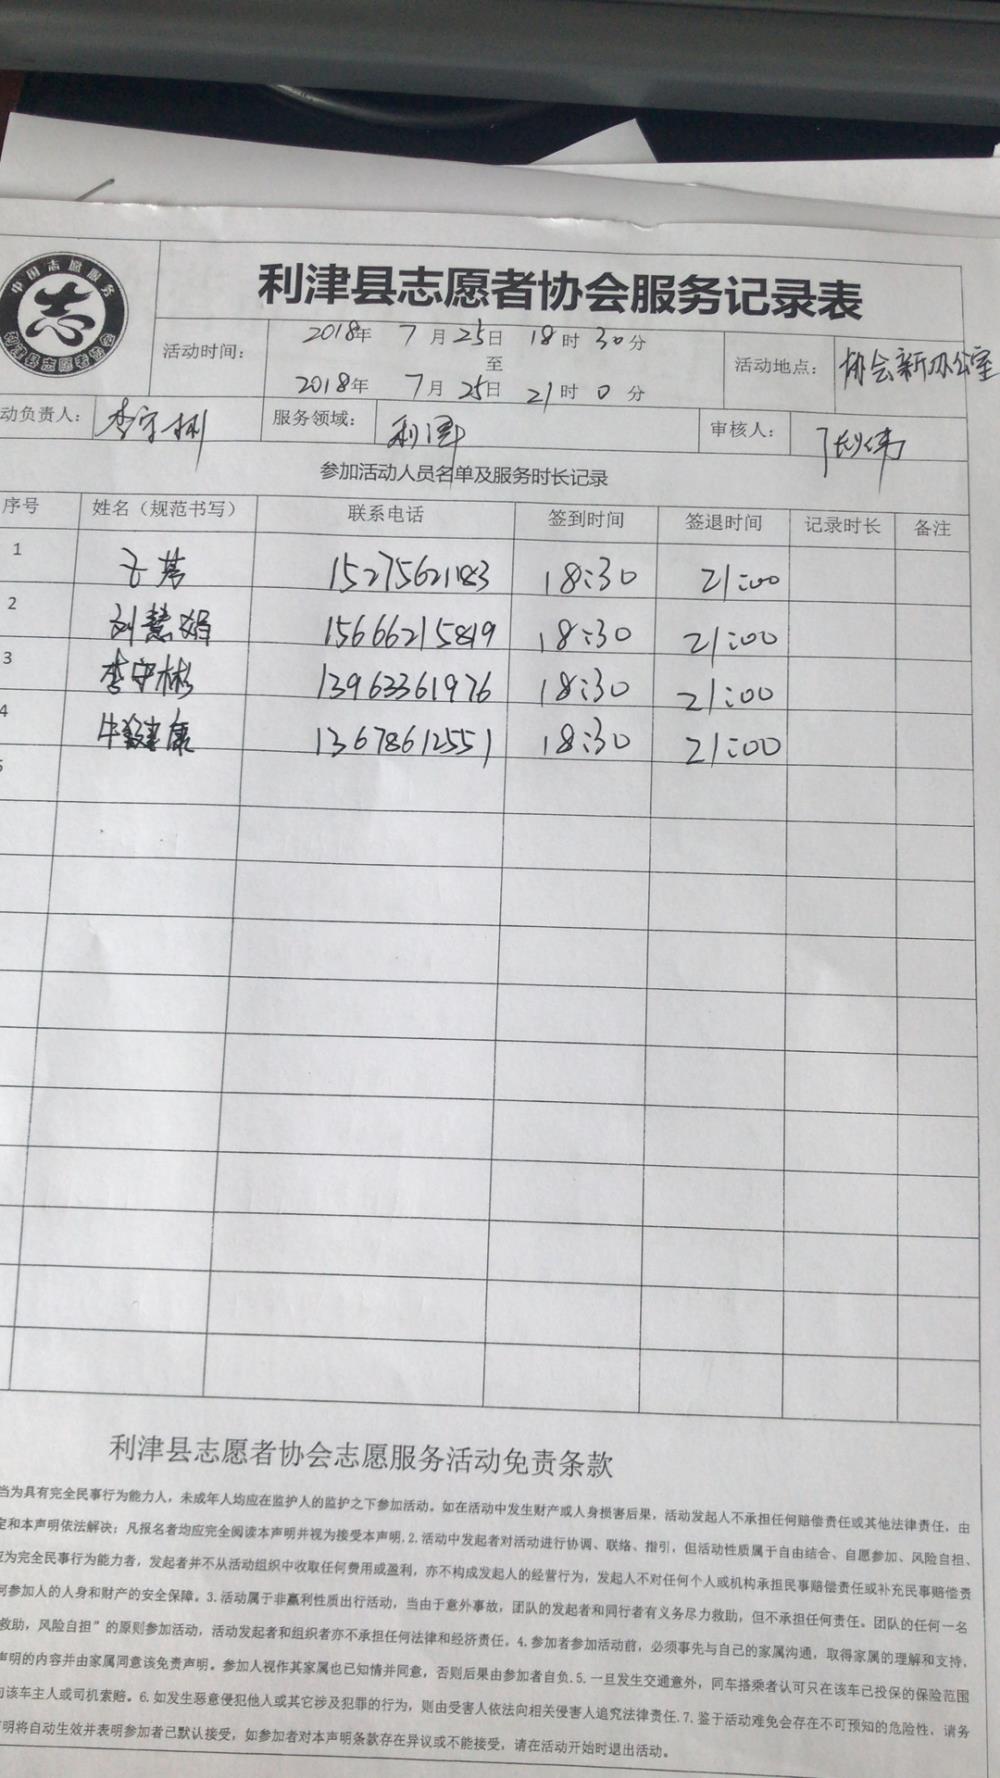 中国志愿服务
志
利津县志愿者协会
利津县志愿者协会服务记录表
活动时间：
2018年 7月25日 18时30分
至
2018年 7月25日 21时0分
活动地点：
协会新办公室
动负责人：
李守彬
服务领域：
利津
审核人：
张伟
参加活动人员名单及服务时长记录
序号 姓名（规范书写） 联系电话 签到时间 签退时间 记录时长 备注
1 18:30 21:00
2 刘慧娟 15666215819 18:30 21:00
3 李守彬 13963361976 18:30 21:00
4 牛健康 13678612551 18:30 21:00
5
利津县志愿者协会志愿服务活动免责条款
当为具有完全民事行为能力人，未成年人均应在监护人的监护之下参加活动。如在活动中发生财产或人身损害后果，活动发起人不承担任何赔偿责任或其他法律责任，由
定和本声明依法解决；凡报名者均应完全阅读本声明并视为接受本声明.2.活动中发起者对活动进行协调、联络、指引，但活动性质属于自由结合、自愿参加、风险自担、
应为完全民事行为能力者，发起者并不从活动组织中收取任何费用或盈利，亦不构成发起人的经营行为，发起人不对任何个人或机构承担民事赔偿责任或补充民事赔偿责
何参加人的人身和财产的安全保障。3.活动属于非赢利性质出行活动，当由于意外事故，团队的发起者和同行者有义务尽力救助，但不承担任何责任。团队的任何一名
救助，风险自担”的原则参加活动，活动发起者和组织者亦不承担任何法律和经济责任。4.参加者参加活动前，必须事先与自己的家属沟通，取得家属的理解和支持，
声明的内容并由家属同意该免责声明。参加人视作其家属也已知情并同意，否则后果由参加者自负.5.一旦发生交通意外，同车搭乘者认可只在该车已投保的保险范围
向该车主人或司机索赔。6.如发生恶意侵犯他人或其它涉及犯罪的行为，则由受害人依法向相关侵害人追究法律责任.7.鉴于活动难免会存在不可预知的危险性，请务
明将自动生效并表明参加者已默认接受，如参加者对本声明条款存在异议或不能接受，请在活动开始时退出活动。